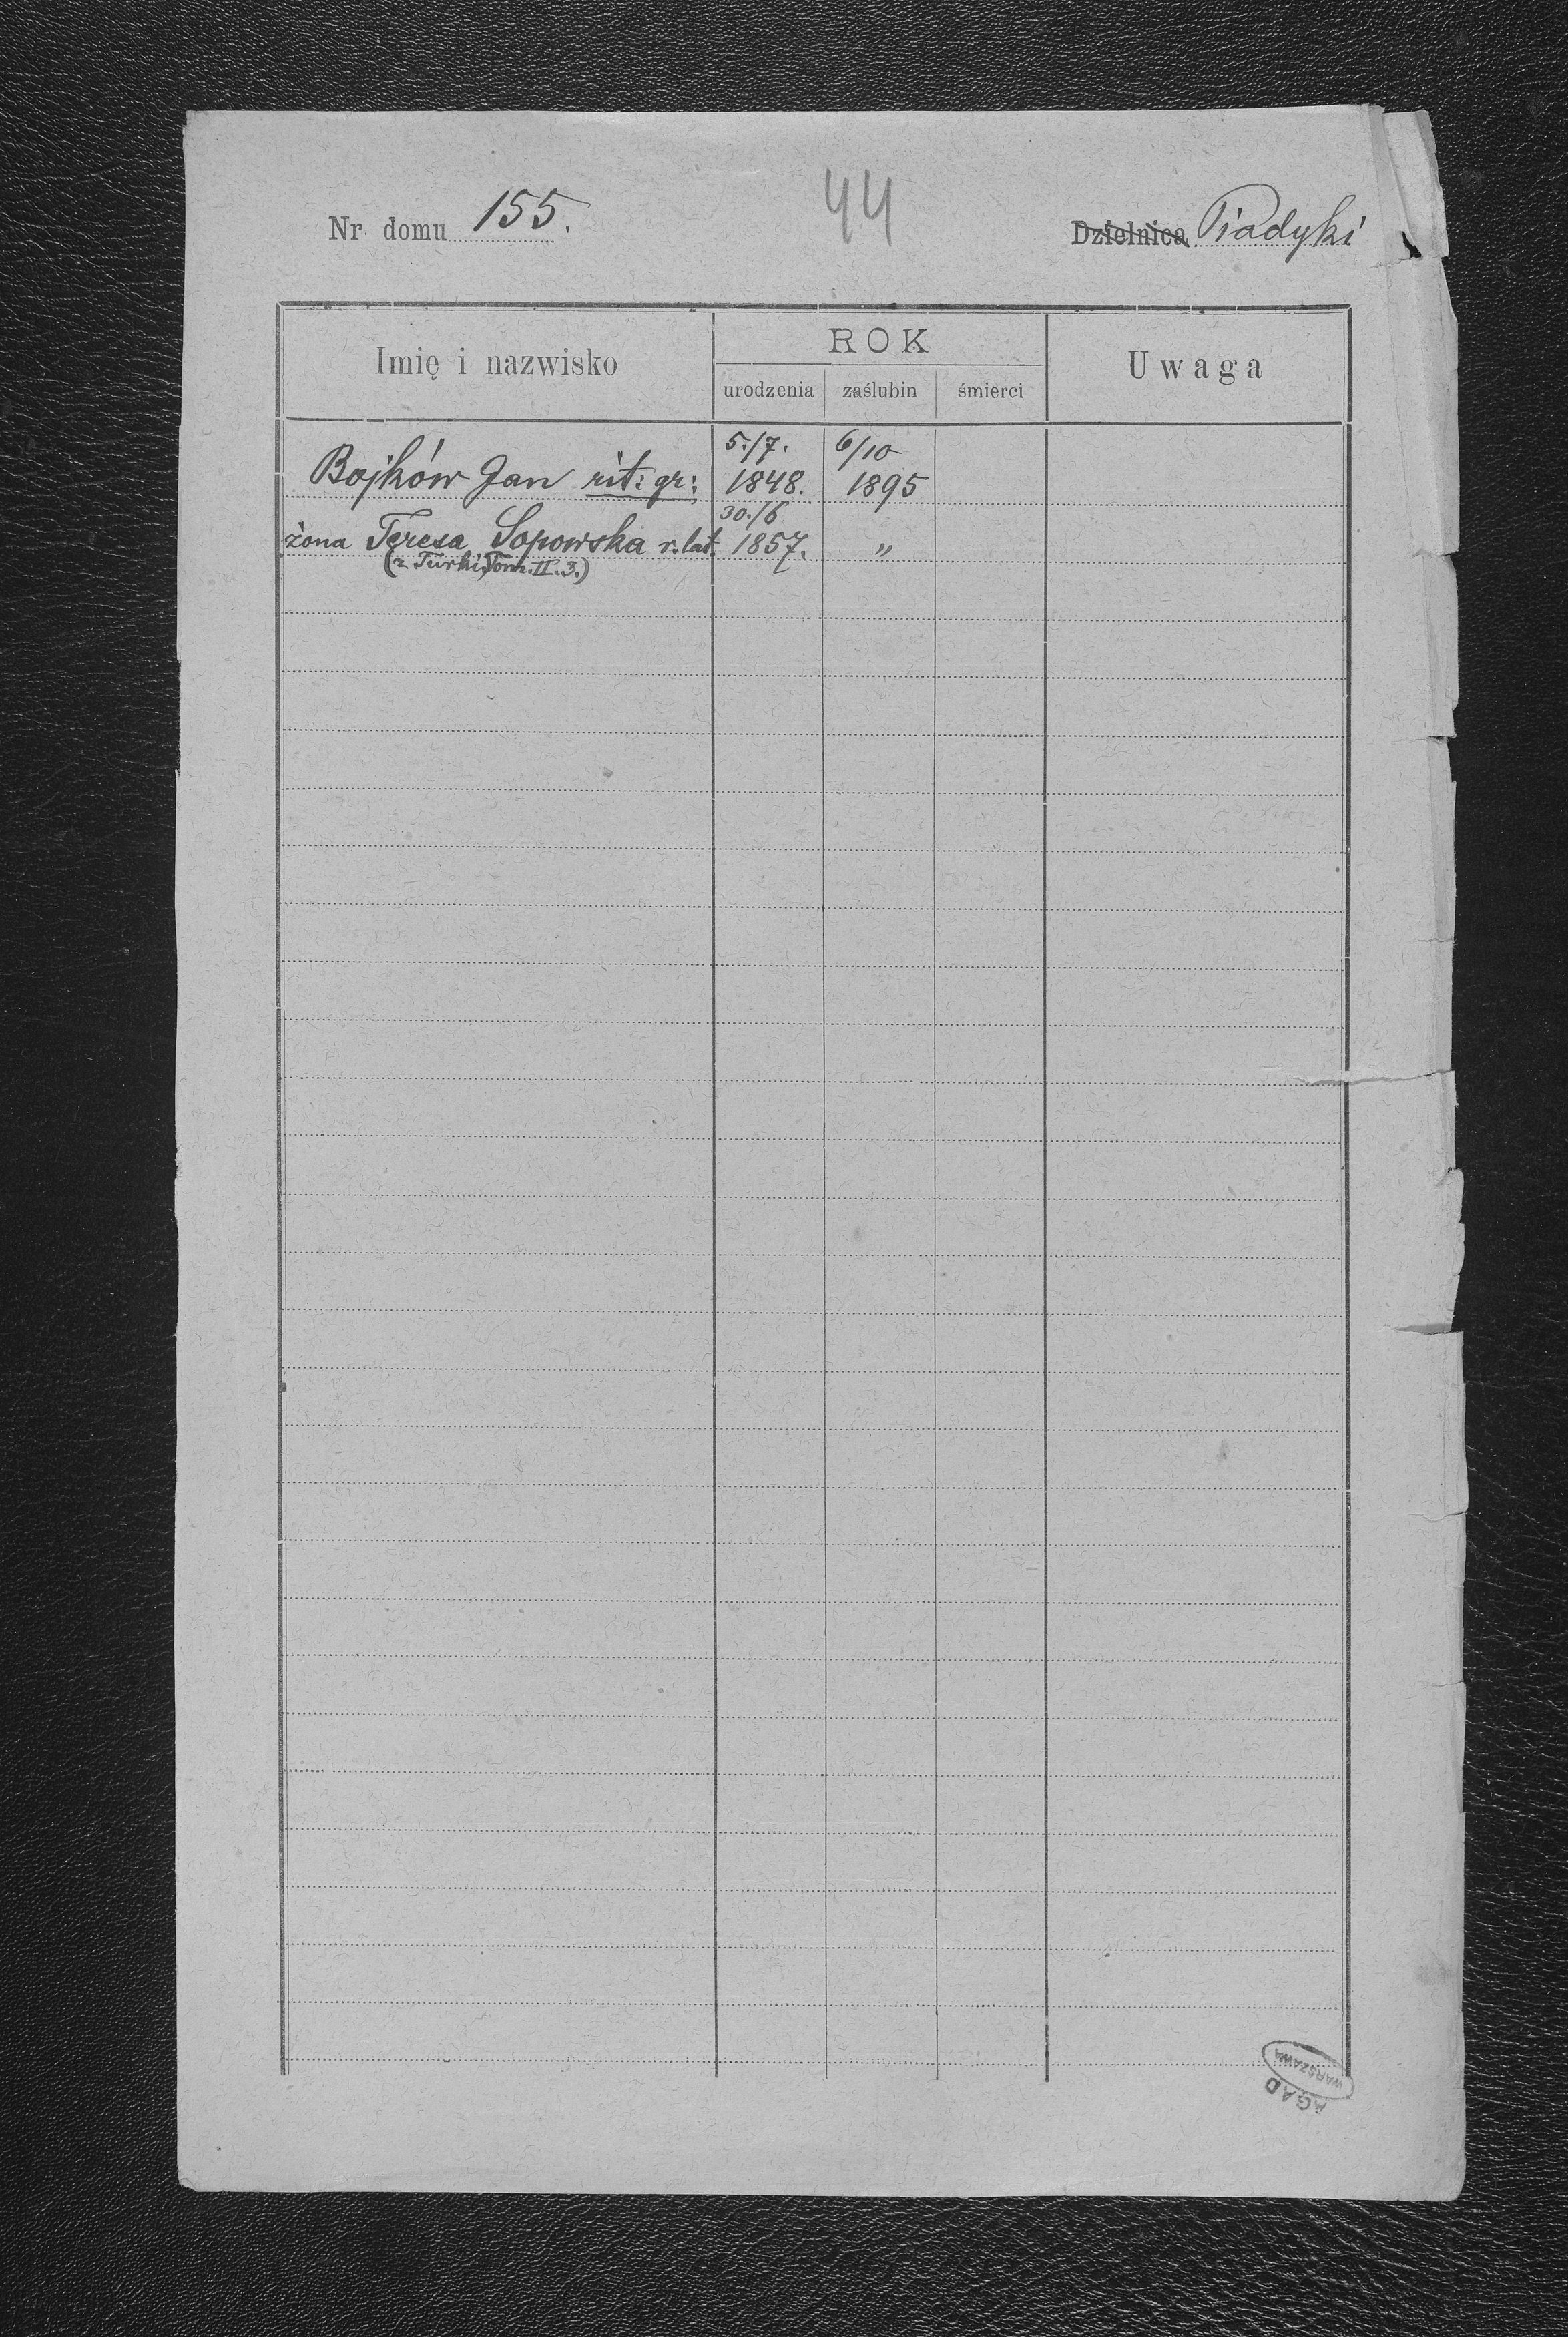 Nr. domu 155.
44
Dzielnica Piadyki
Imię i nazwisko
ROK
urodzenia
zaślubin
śmierci
Uwaga
5./7. 6/10
Bojków Jan rit: gr: 1848. 1895
30./6
żona Teresa Sopowska r. lat. 1857. "
(z Turki, Tom. II. 3.)
WARSZAWA
AGAD